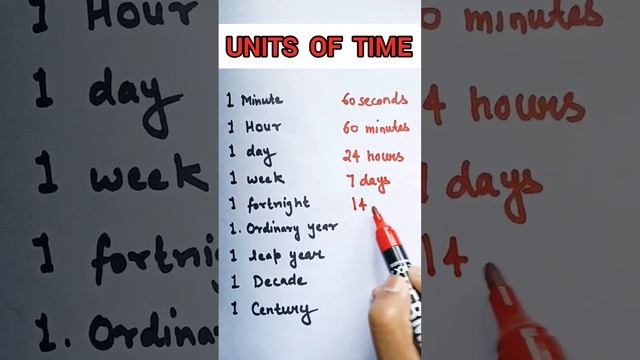 UNITS OF TIME
1 Minute 60 seconds
1 Hour 60 minutes
1 day 24 hours
1 week 7 days
1 fortnight 14
1. Ordinary year
1 leap year
1 Decade
1 Century